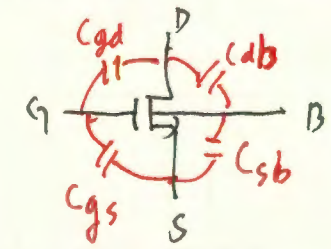 D
Cgd
Cdb
G
B
Csb
Cgs
S